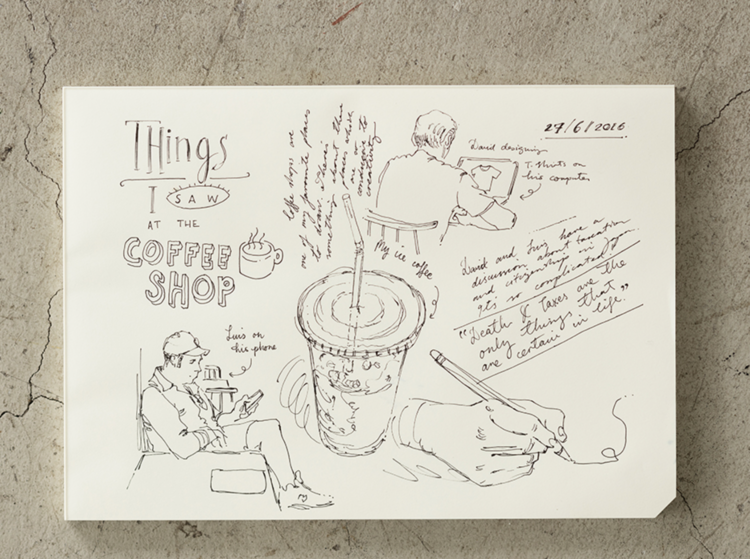 THings
I SAW
AT THE
COFFEE
SHOP
Coffee shops are
one of my favorite places
to draw. There's
something about the
places which
are so
conducive to
creativity
27/6/2016
David designing
T-shirts on
his computer
My ice coffee
David and Luis have a
discussion about taxation
and citizenship in
It's so complicated
"Death & taxes are the
only things that
are certain in life."
Luis on
his phone